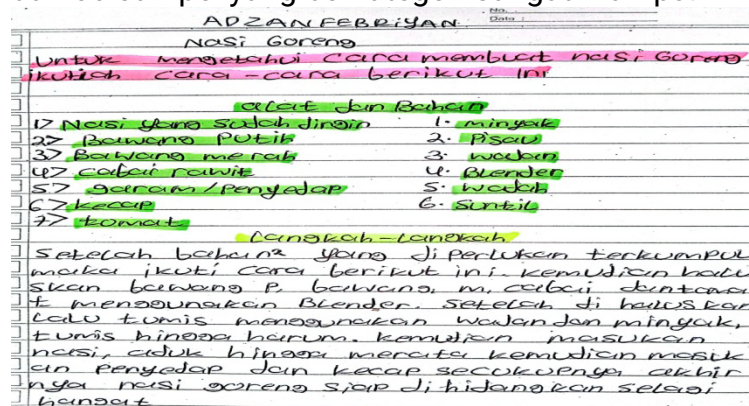 ADZAN FEBRIYAN
No.
Date :
Nasi Goreng
Untuk mengetahui cara membuat nasi Goreng
ikutilah cara-cara berikut ini
alat dan Bahan
1> Nasi yang sudah dingin
2> Bawang Putih
3> Bawang merah
4> cabai rawit
5> garam/penyedap
6> kecap
7> tomat
1. minyak
2. Pisau
3. wadan
4. Blender
5. wadah
6. Suntil
Langkah-Langkah
Setelah bahan² yang diperlukan terkumpul
maka ikuti cara berikut ini. kemudian halu
skan bawang P. bawang. m. cabai dan toma
t menggunakan Blender. setelah di haluskan
Lalu tumis menggunakan wajan dan minyak,
tumis hingga harum. kemudian masukan
nasi, aduk hingga merata kemudian masuk
an penyedap dan kecap secukupnya akhir
nya nasi goreng siap di hidangkan selagi
hangat